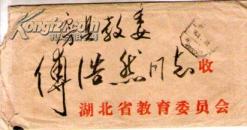 房县教委
傅浩然同志 收
湖北省教育委员会